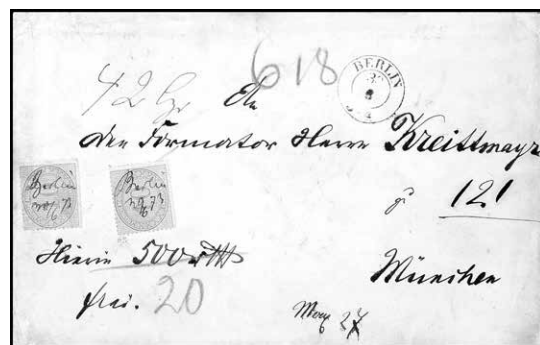 618
BERLIN
42
An
den Formator Herrn Kreittmayr
121
Berlin
Berlin
Hierin 500
München
frei. 20